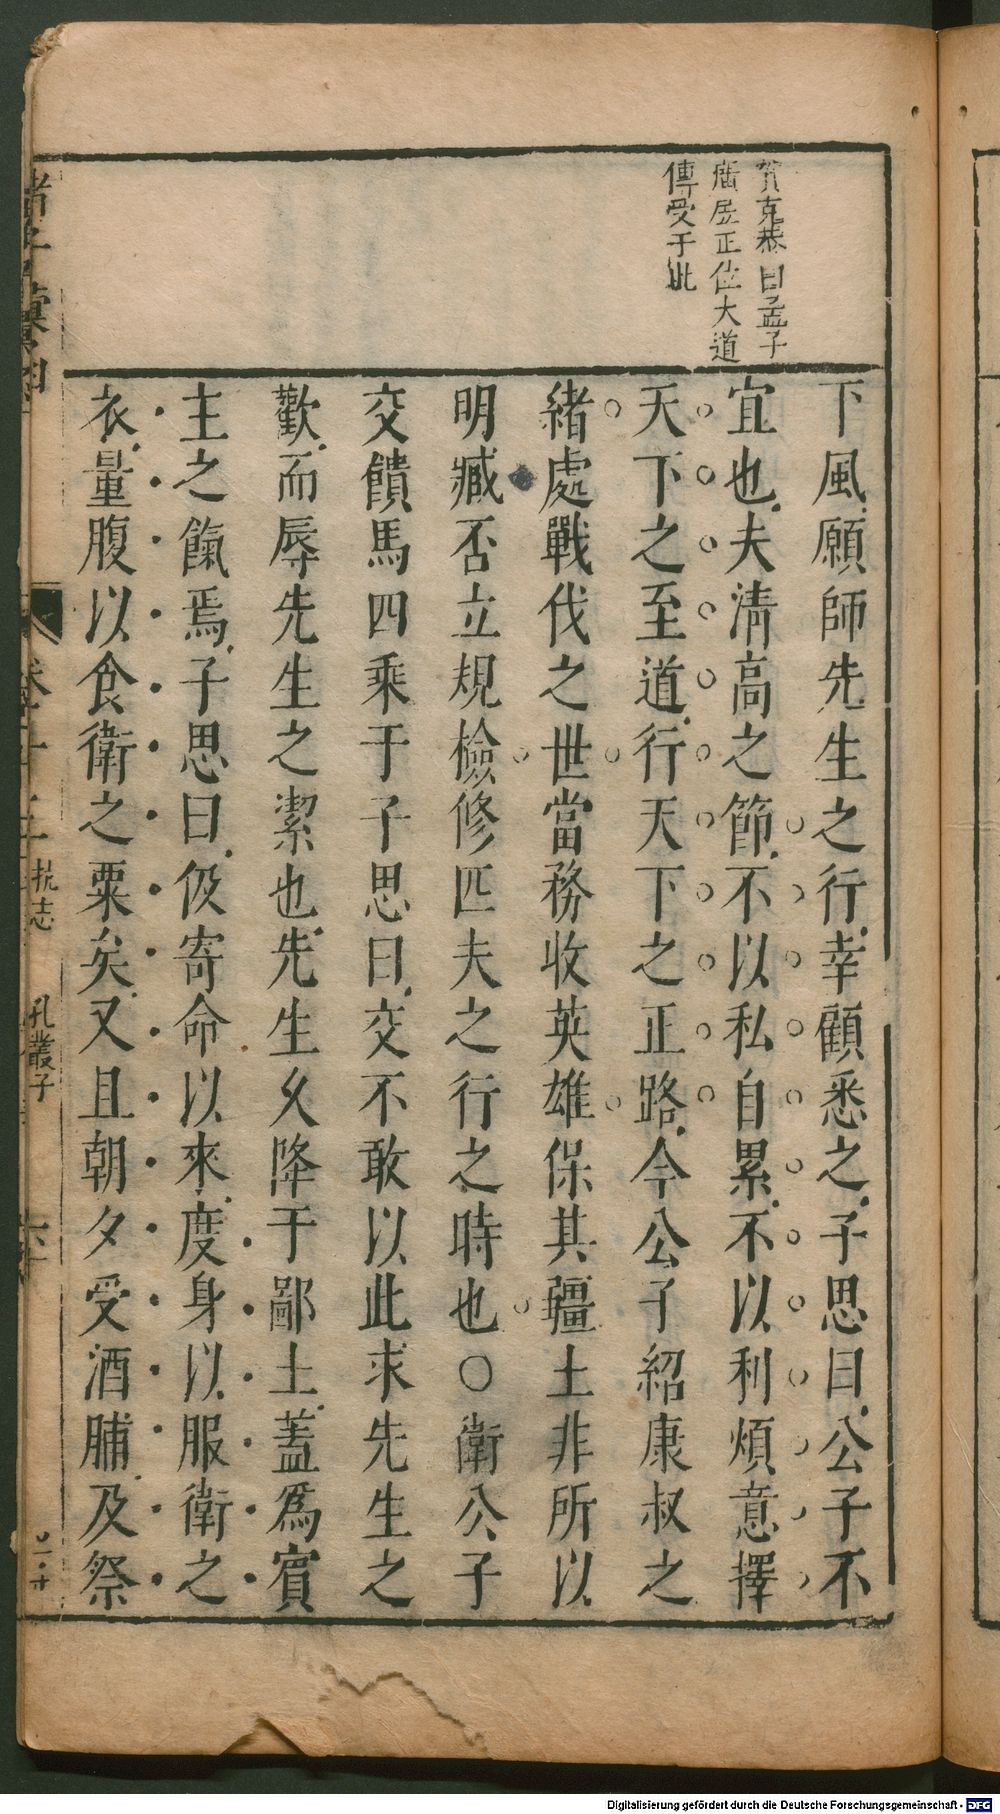 賀克恭曰孟子
廣居正位大道
傳受于此
下風願師先生之行幸顧悉之子思曰公子不
宜也夫清高之節不以私自累不以利煩意擇
天下之至道行天下之正路今公子紹康叔之
緒處戰伐之世當務收英雄保其疆土非所以
明臧否立規檢修匹夫之行之時也○衛公子
交饋馬四乘于子思曰交不敢以此求先生之
歡而辱先生之潔也先生乆降于鄙土蓋爲賓
主之餼焉子思曰伋寄命以來度身以服衛之
衣量腹以食衛之粟矣又且朝夕受酒脯及祭
抗志 孔叢子
Digitalisierung gefördert durch die Deutsche Forschungsgemeinschaft - DFG